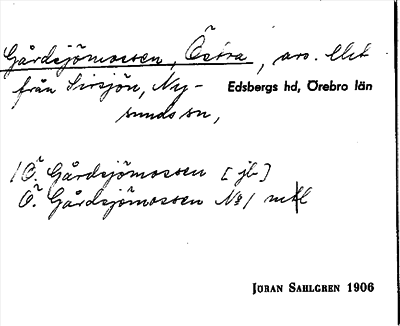 Gårdsjömossen, Östra, avs. Elek
från Sirsjön, Ny- Edsbergs hd, Örebro län
sunds sn,
/Ö. Gårdsjömossen [jb]
Ö. Gårdsjömossen No 1 mtl
JÖRAN SAHLGREN 1906